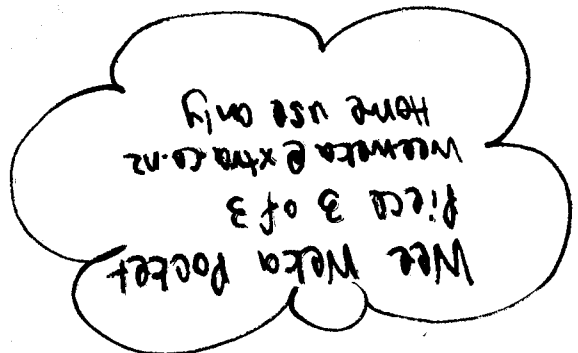 Wee Weka Pocket
Piece 3 of 3
weeweka@xtra.co.nz
Home use only